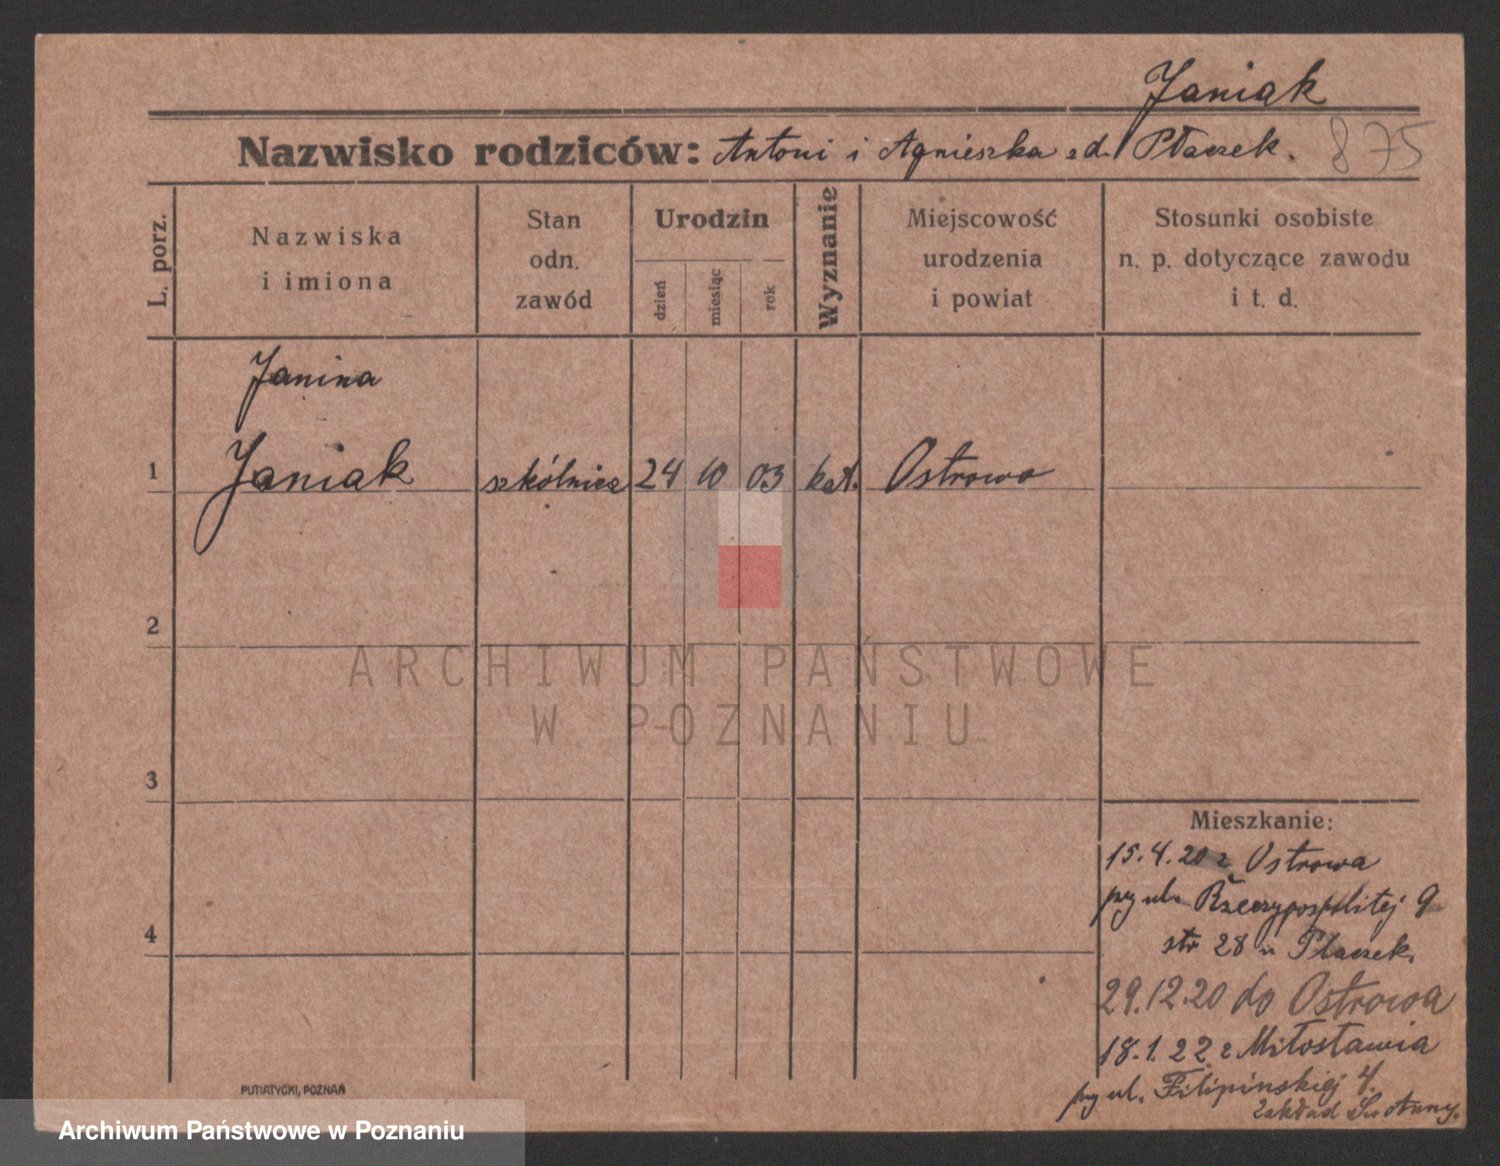 Janiak
Nazwisko rodziców: Antoni i Agnieszka z d. Płaczek. 875
L. porz.
Nazwiska
i imiona
Stan
odn.
zawód
Urodzin
dzień
miesiąc
rok
Wyznanie
Miejscowość
urodzenia
i powiat
Stosunki osobiste
n. p. dotyczące zawodu
i t. d.
Janina
1 Janiak szkólnica 24 10 03 kat. Ostrowo
2
ARCHIWUM PAŃSTWOWE
W POZNANIU
3
Mieszkanie:
15.4.20 z Ostrowa
przy ul. Rzeczypospolitej 9
str 28 u Płaczek.
4
29.12.20 do Ostrowa
18.1.22 z Miłosławia
przy ul. Filipińskiej 4.
Zakład Św Anny.
PUTIATYCKI, POZNAŃ
Archiwum Państwowe w Poznaniu